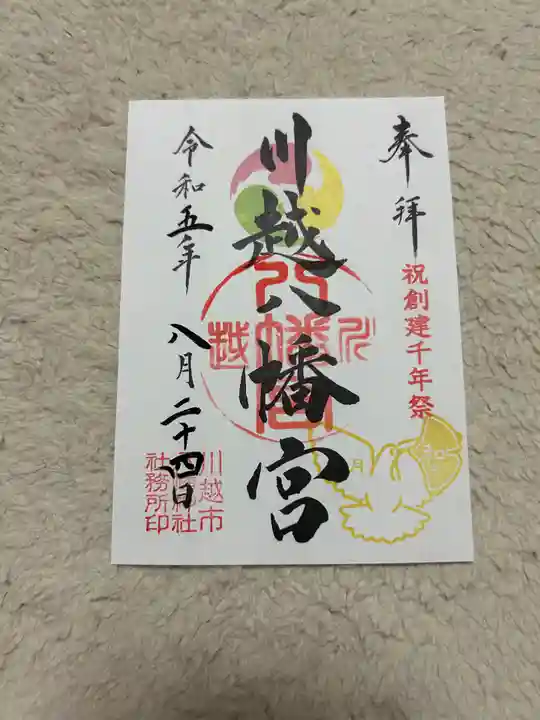 奉拝
祝創建千年祭
川越八幡宮
川越
八幡宮
令和五年
八月二十四日
川越市
社務所印